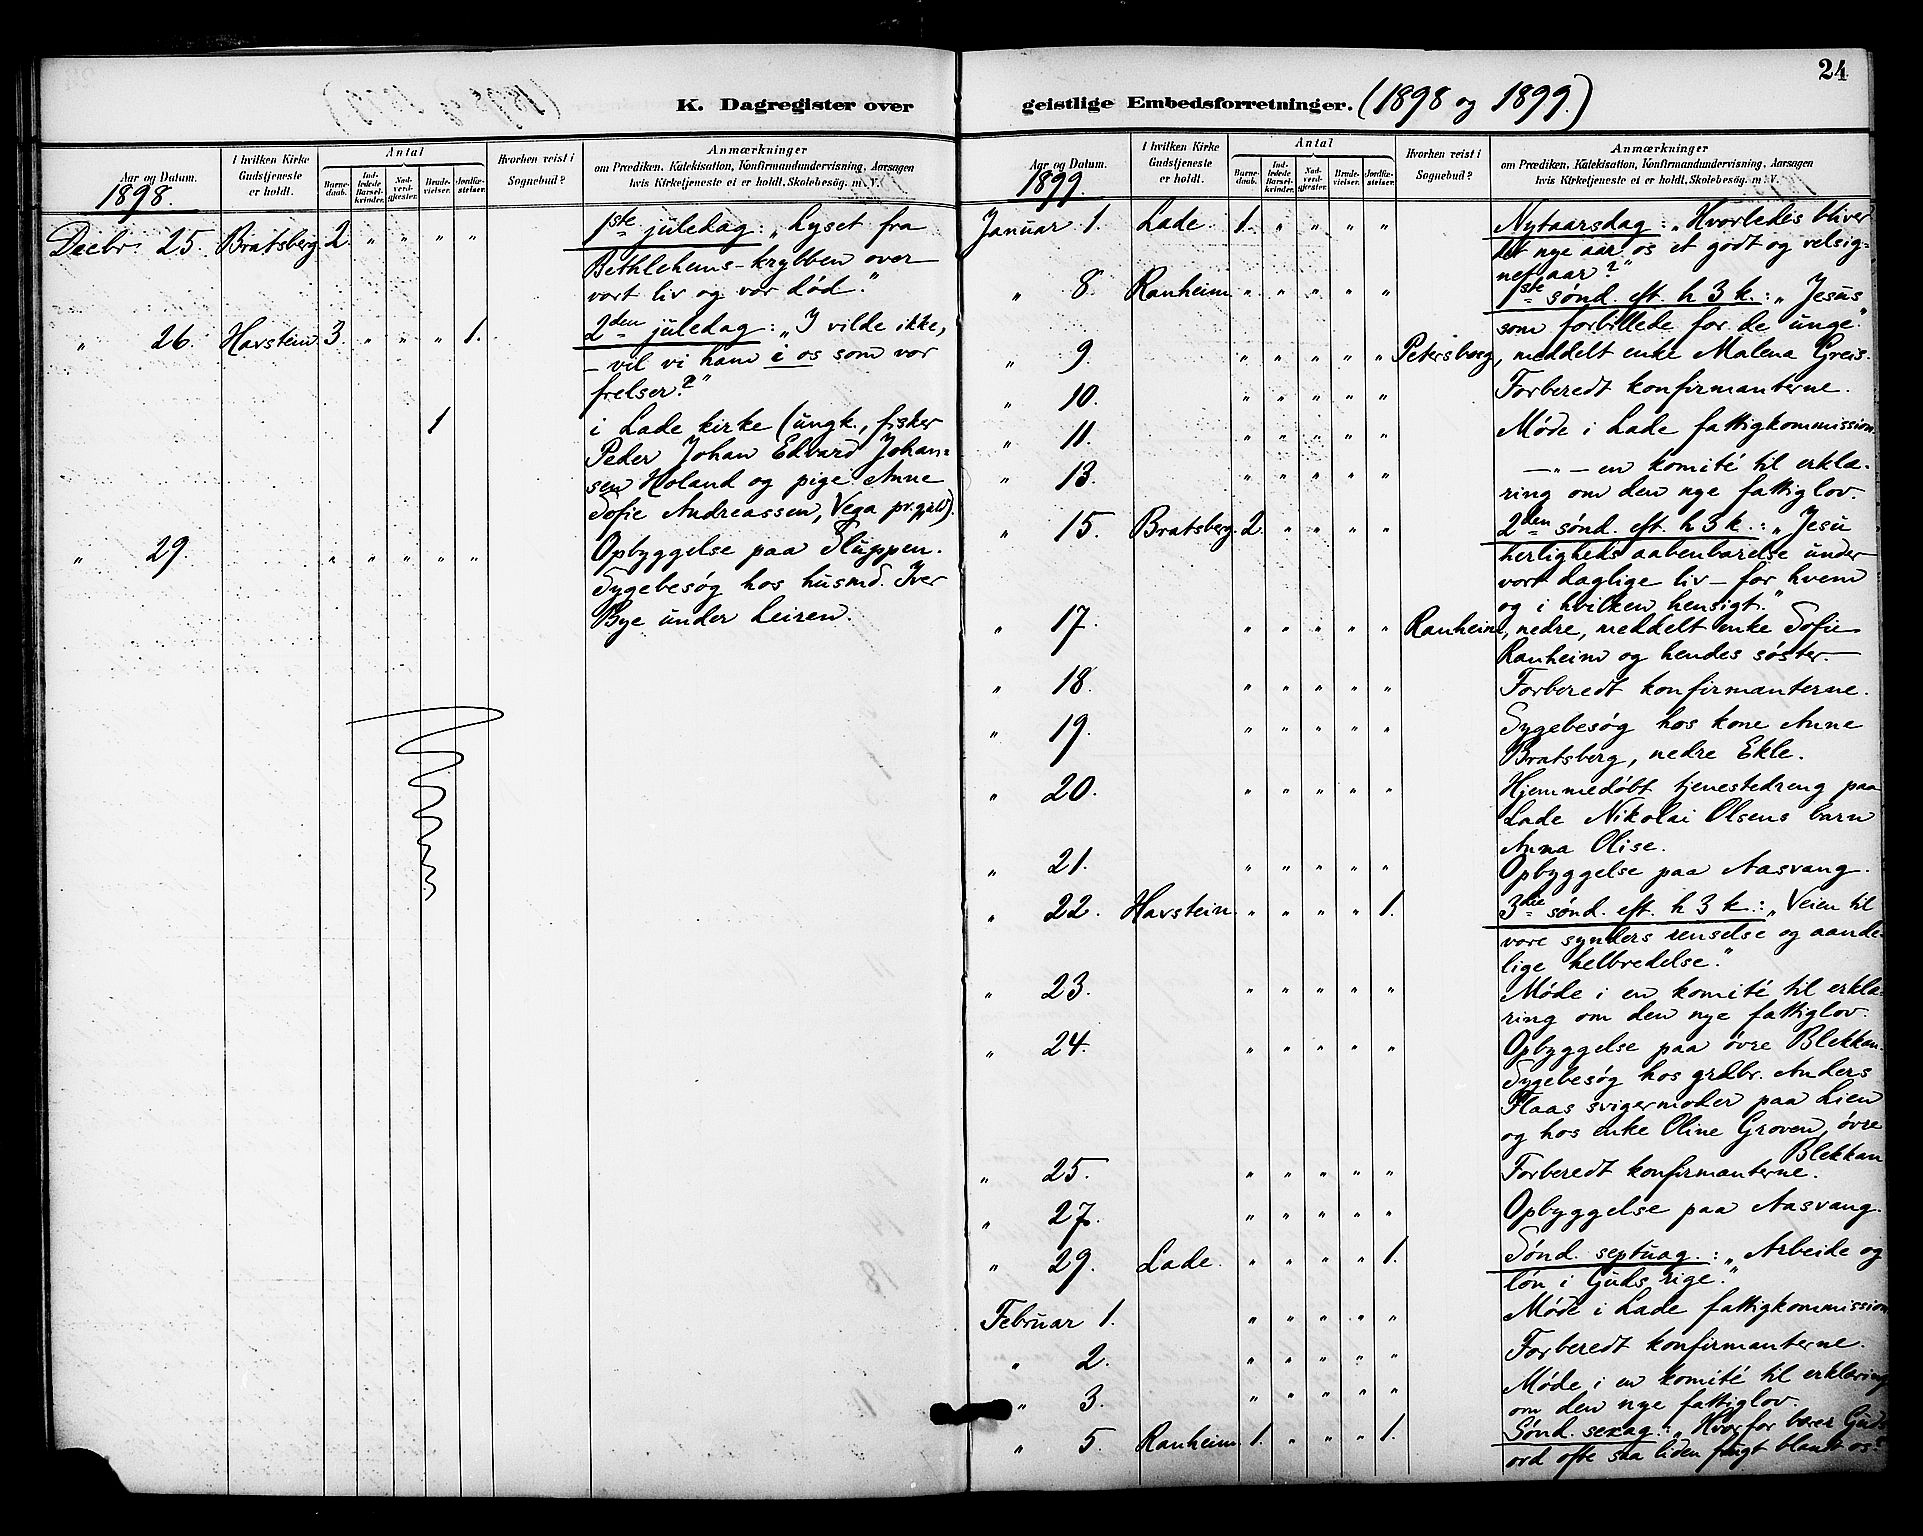 24
K. Dagregister over
Aar og Datum.
1898.
I hvilken Kirke Gudstjeneste er holdt.
Antal
Barnedaab.
Indledede Barselkvinder.
Nadverdgjester.
Brudevielser.
Jordfæstelser.
Hvorhen reist i Sognebud?
Anmærkninger
om Prædiken, Katekisation, Konfirmandundervisning, Aarsagen
hvis Kirketjeneste ei er holdt, Skolebesøg. m. V.
Decbr. 25. Bratsberg 2. " " " " 1ste juledag: „Lyset fra
Bethlehems-krybben over
vort liv og vor død."
" 26. Havstein 3. " " " 1. 2den juledag: „I vilde ikke,
– vil vi ham i os som vor
frelser?"
1 i Lade kirke (ungk., fisker
Peder Johan Edvard Johan-
sen Holand og pige Anne
Sofie Andreassen, Vega pr.gjeld).
" 29. " " " " " Opbyggelse paa Sluppen.
Sygebesøg hos husmd. Iver
Bye under Leiren.
geistlige Embedsforretninger. (1898 og 1899.)
Aar og Datum.
1899.
I hvilken Kirke Gudstjeneste er holdt.
Antal
Barnedaab.
Indledede Barselkvinder.
Nadverdgjester.
Brudevielser.
Jordfæstelser.
Hvorhen reist i Sognebud?
Anmærkninger
om Prædiken, Katekisation, Konfirmandundervisning, Aarsagen
hvis Kirketjeneste ei er holdt, Skolebesøg. m. V.
Januar 1. Lade 1. " " " " Nytaarsdag: „Hvorledes bliver
det nye aar os et godt og velsig-
net aar?"
" 8. Ranheim " " " " " 1ste sønd. eft. h 3 k.: „Jesus
som forbillede for de unge."
" 9. " " " " " Petersborg, meddelt enke Malena Greis.
" 10. " " " " " Forberedt konfirmanterne.
" 11. " " " " " Møde i Lade fattigkommission.
" 13. " " " " " – " – en komité til erklæ-
ring om den nye fattiglov.
" 15. Bratsberg. 2. " " " " 2den sønd. eft. h 3 k.: „Jesu
herligheds aabenbarelse under
vort daglige liv – for hvem
og i hvilken hensigt."
" 17. " " " " " Ranheim, nedre, meddelt enke Sofie
Ranheim og hendes søster.
" 18. " " " " " Forberedt konfirmanterne.
" 19. " " " " " Sygebesøg hos kone Anne
Bratsberg, nedre Ekle.
" 20. " " " " " Hjemmedøbt tjenestedreng paa
Lade Nikolai Olsens barn
Anna Olise.
" 21. " " " " " Opbyggelse paa Aasvang.
" 22. Havstein " " " " 1. 3die sønd. eft. h 3 k.: „Veien til
vore synders renselse og aande-
lige helbredelse."
" 23. " " " " " Møde i en komité til erklæ-
ring om den nye fattiglov.
" 24. " " " " " Opbyggelse paa øvre Blekkan.
Sygebesøg hos grdbr. Anders
Flaas svigermoder paa Lien
og hos enke Oline Groven, øvre
Blekkan
" 25. " " " " " Forberedt konfirmanterne.
" 27. " " " " " Opbyggelse paa Aasvang.
" 29. Lade. " " " " 1. Sønd. septuag.: „Arbeide og
løn i Guds rige."
Februar 1. " " " " " Møde i Lade fattigkommission
" 2. " " " " " Forberedt konfirmanterne.
" 3. " " " " " Møde i en komité til erklæring
om den nye fattiglov.
" 5. Ranheim 1. " " " 1. Sønd. sexag.: „Hvorfor bærer Guds
ord ofte saa liden frugt blandt os?